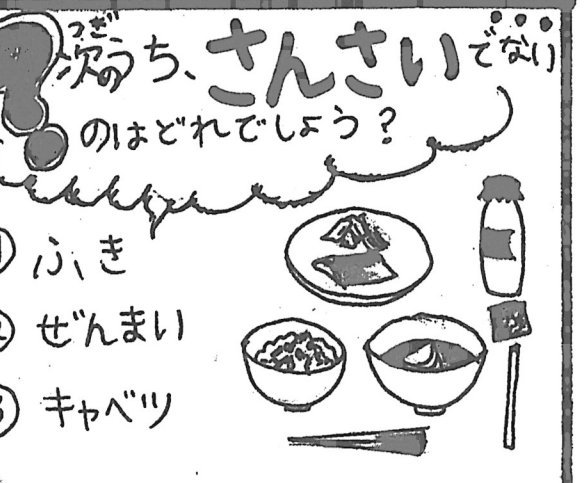 つぎ
次のうち、さんさいでない
のはどれでしょう？
① ふき
② ぜんまい
③ キャベツ